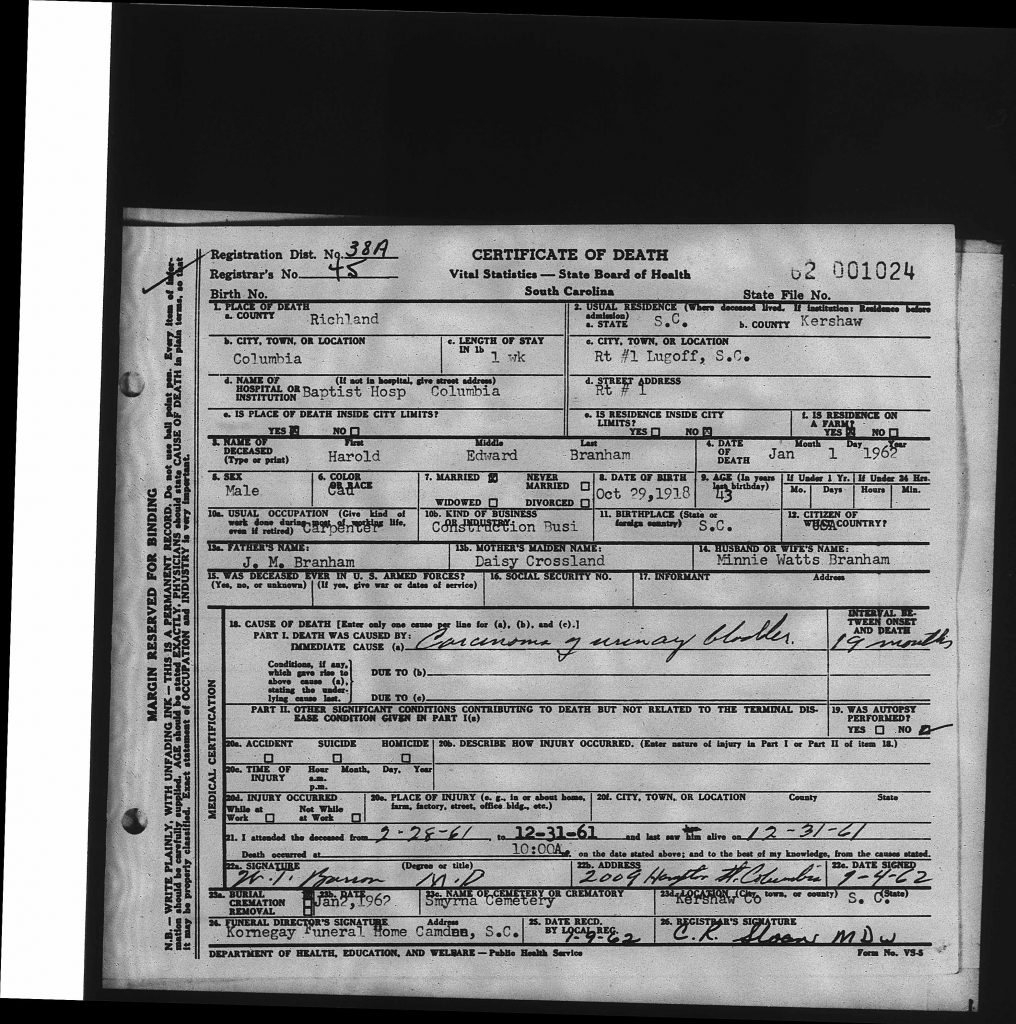 Registration Dist. No. 38A
CERTIFICATE OF DEATH
Registrar's No. 45
Vital Statistics — State Board of Health
62 001024
Birth No.
South Carolina
State File No.
1. PLACE OF DEATH
a. COUNTY Richland
2. USUAL RESIDENCE (Where deceased lived. If institution: Residence before admission)
a. STATE S.C. b. COUNTY Kershaw
b. CITY, TOWN, OR LOCATION
Columbia
c. LENGTH OF STAY IN 1b
1 wk
c. CITY, TOWN, OR LOCATION
Rt #1 Lugoff, S.C.
d. NAME OF HOSPITAL OR INSTITUTION (If not in hospital, give street address)
Baptist Hosp Columbia
d. STREET ADDRESS
Rt # 1
e. IS PLACE OF DEATH INSIDE CITY LIMITS?
YES NO
e. IS RESIDENCE INSIDE CITY LIMITS?
YES NO
f. IS RESIDENCE ON A FARM?
YES NO
3. NAME OF DECEASED (Type or print)
First Middle Last
Harold Edward Branham
4. DATE OF DEATH
Month Day Year
Jan 1 1962
5. SEX
Male
6. COLOR OR RACE
Cau
7. MARRIED NEVER MARRIED
WIDOWED DIVORCED
8. DATE OF BIRTH
Oct 29,1918
9. AGE (In years last birthday)
43
If Under 1 Yr. If Under 24 Hrs.
Mo. Days Hours Min.
10a. USUAL OCCUPATION (Give kind of work done during most of working life, even if retired)
Carpenter
10b. KIND OF BUSINESS OR INDUSTRY
Construction Busi
11. BIRTHPLACE (State or foreign country)
S.C.
12. CITIZEN OF WHAT COUNTRY?
USA
13a. FATHER'S NAME:
J. M. Branham
13b. MOTHER'S MAIDEN NAME:
Daisy Crossland
14. HUSBAND OR WIFE'S NAME:
Minnie Watts Branham
15. WAS DECEASED EVER IN U. S. ARMED FORCES?
(Yes, no, or unknown) (If yes, give war or dates of service)
16. SOCIAL SECURITY NO.
17. INFORMANT Address
18. CAUSE OF DEATH [Enter only one cause per line for (a), (b), and (c).]
PART I. DEATH WAS CAUSED BY:
IMMEDIATE CAUSE (a) Carcinoma of urinary bladder.
INTERVAL BETWEEN ONSET AND DEATH
19 months
Conditions, if any, which gave rise to above cause (a), stating the underlying cause last.
DUE TO (b)
DUE TO (c)
PART II. OTHER SIGNIFICANT CONDITIONS CONTRIBUTING TO DEATH BUT NOT RELATED TO THE TERMINAL DISEASE CONDITION GIVEN IN PART I(a)
19. WAS AUTOPSY PERFORMED?
YES NO
20a. ACCIDENT SUICIDE HOMICIDE
20b. DESCRIBE HOW INJURY OCCURRED. (Enter nature of injury in Part I or Part II of item 18.)
20c. TIME OF INJURY Hour Month, Day, Year
a.m.
p.m.
20d. INJURY OCCURRED
While at Work Not While at Work
20e. PLACE OF INJURY (e. g., in or about home, farm, factory, street, office bldg., etc.)
20f. CITY, TOWN, OR LOCATION County State
21. I attended the deceased from 9-28-61 to 12-31-61 and last saw him alive on 12-31-61
Death occurred at 10:00A. on the date stated above; and to the best of my knowledge, from the causes stated.
22a. SIGNATURE (Degree or title)
M.D
22b. ADDRESS
2009 Hampton St. Columbia
22c. DATE SIGNED
1-4-62
23a. BURIAL
CREMATION
REMOVAL
23b. DATE
Jan2,1962
23c. NAME OF CEMETERY OR CREMATORY
Smyrna Cemetery
23d. LOCATION (City, town, or county) (State)
Kershaw Co S. C.
24. FUNERAL DIRECTOR'S SIGNATURE Address
Kornegay Funeral Home Camden, S.C.
25. DATE RECD. BY LOCAL REG.
1-9-62
26. REGISTRAR'S SIGNATURE
C.R. Sloan MD
DEPARTMENT OF HEALTH, EDUCATION, AND WELFARE — Public Health Service
Form No. VS-5
MEDICAL CERTIFICATION
MARGIN RESERVED FOR BINDING
N.B. — WRITE PLAINLY, WITH UNFADING INK — THIS IS A PERMANENT RECORD. Do not use ball point pen. Every item of information should be carefully supplied. AGE should be stated EXACTLY. PHYSICIANS should state CAUSE OF DEATH in plain terms, so that it may be properly classified. Exact statement of OCCUPATION and INDUSTRY is very important.